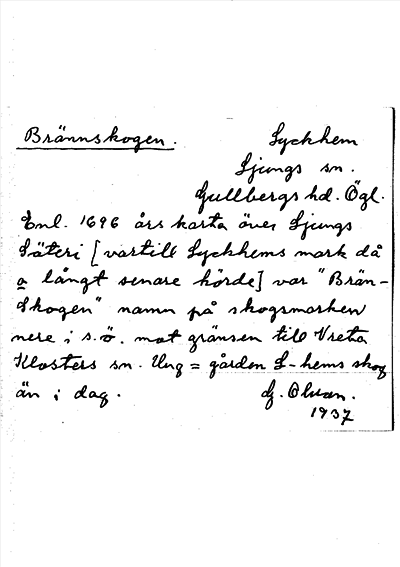 Brännskogen. Lyckhem
Ljungs sn.
Gullbergs hd. Ögl.
Enl. 1696 års karta över Ljungs
Säteri [vartill Lyckhems mark då
o långt senare hörde] var "Brän-
skogen" namn på skogsmarken
nere i s.ö. mot gränsen till Vreta
Klosters sn. Ung = gården L-hems skog
än i dag. G. Olsson.
1937